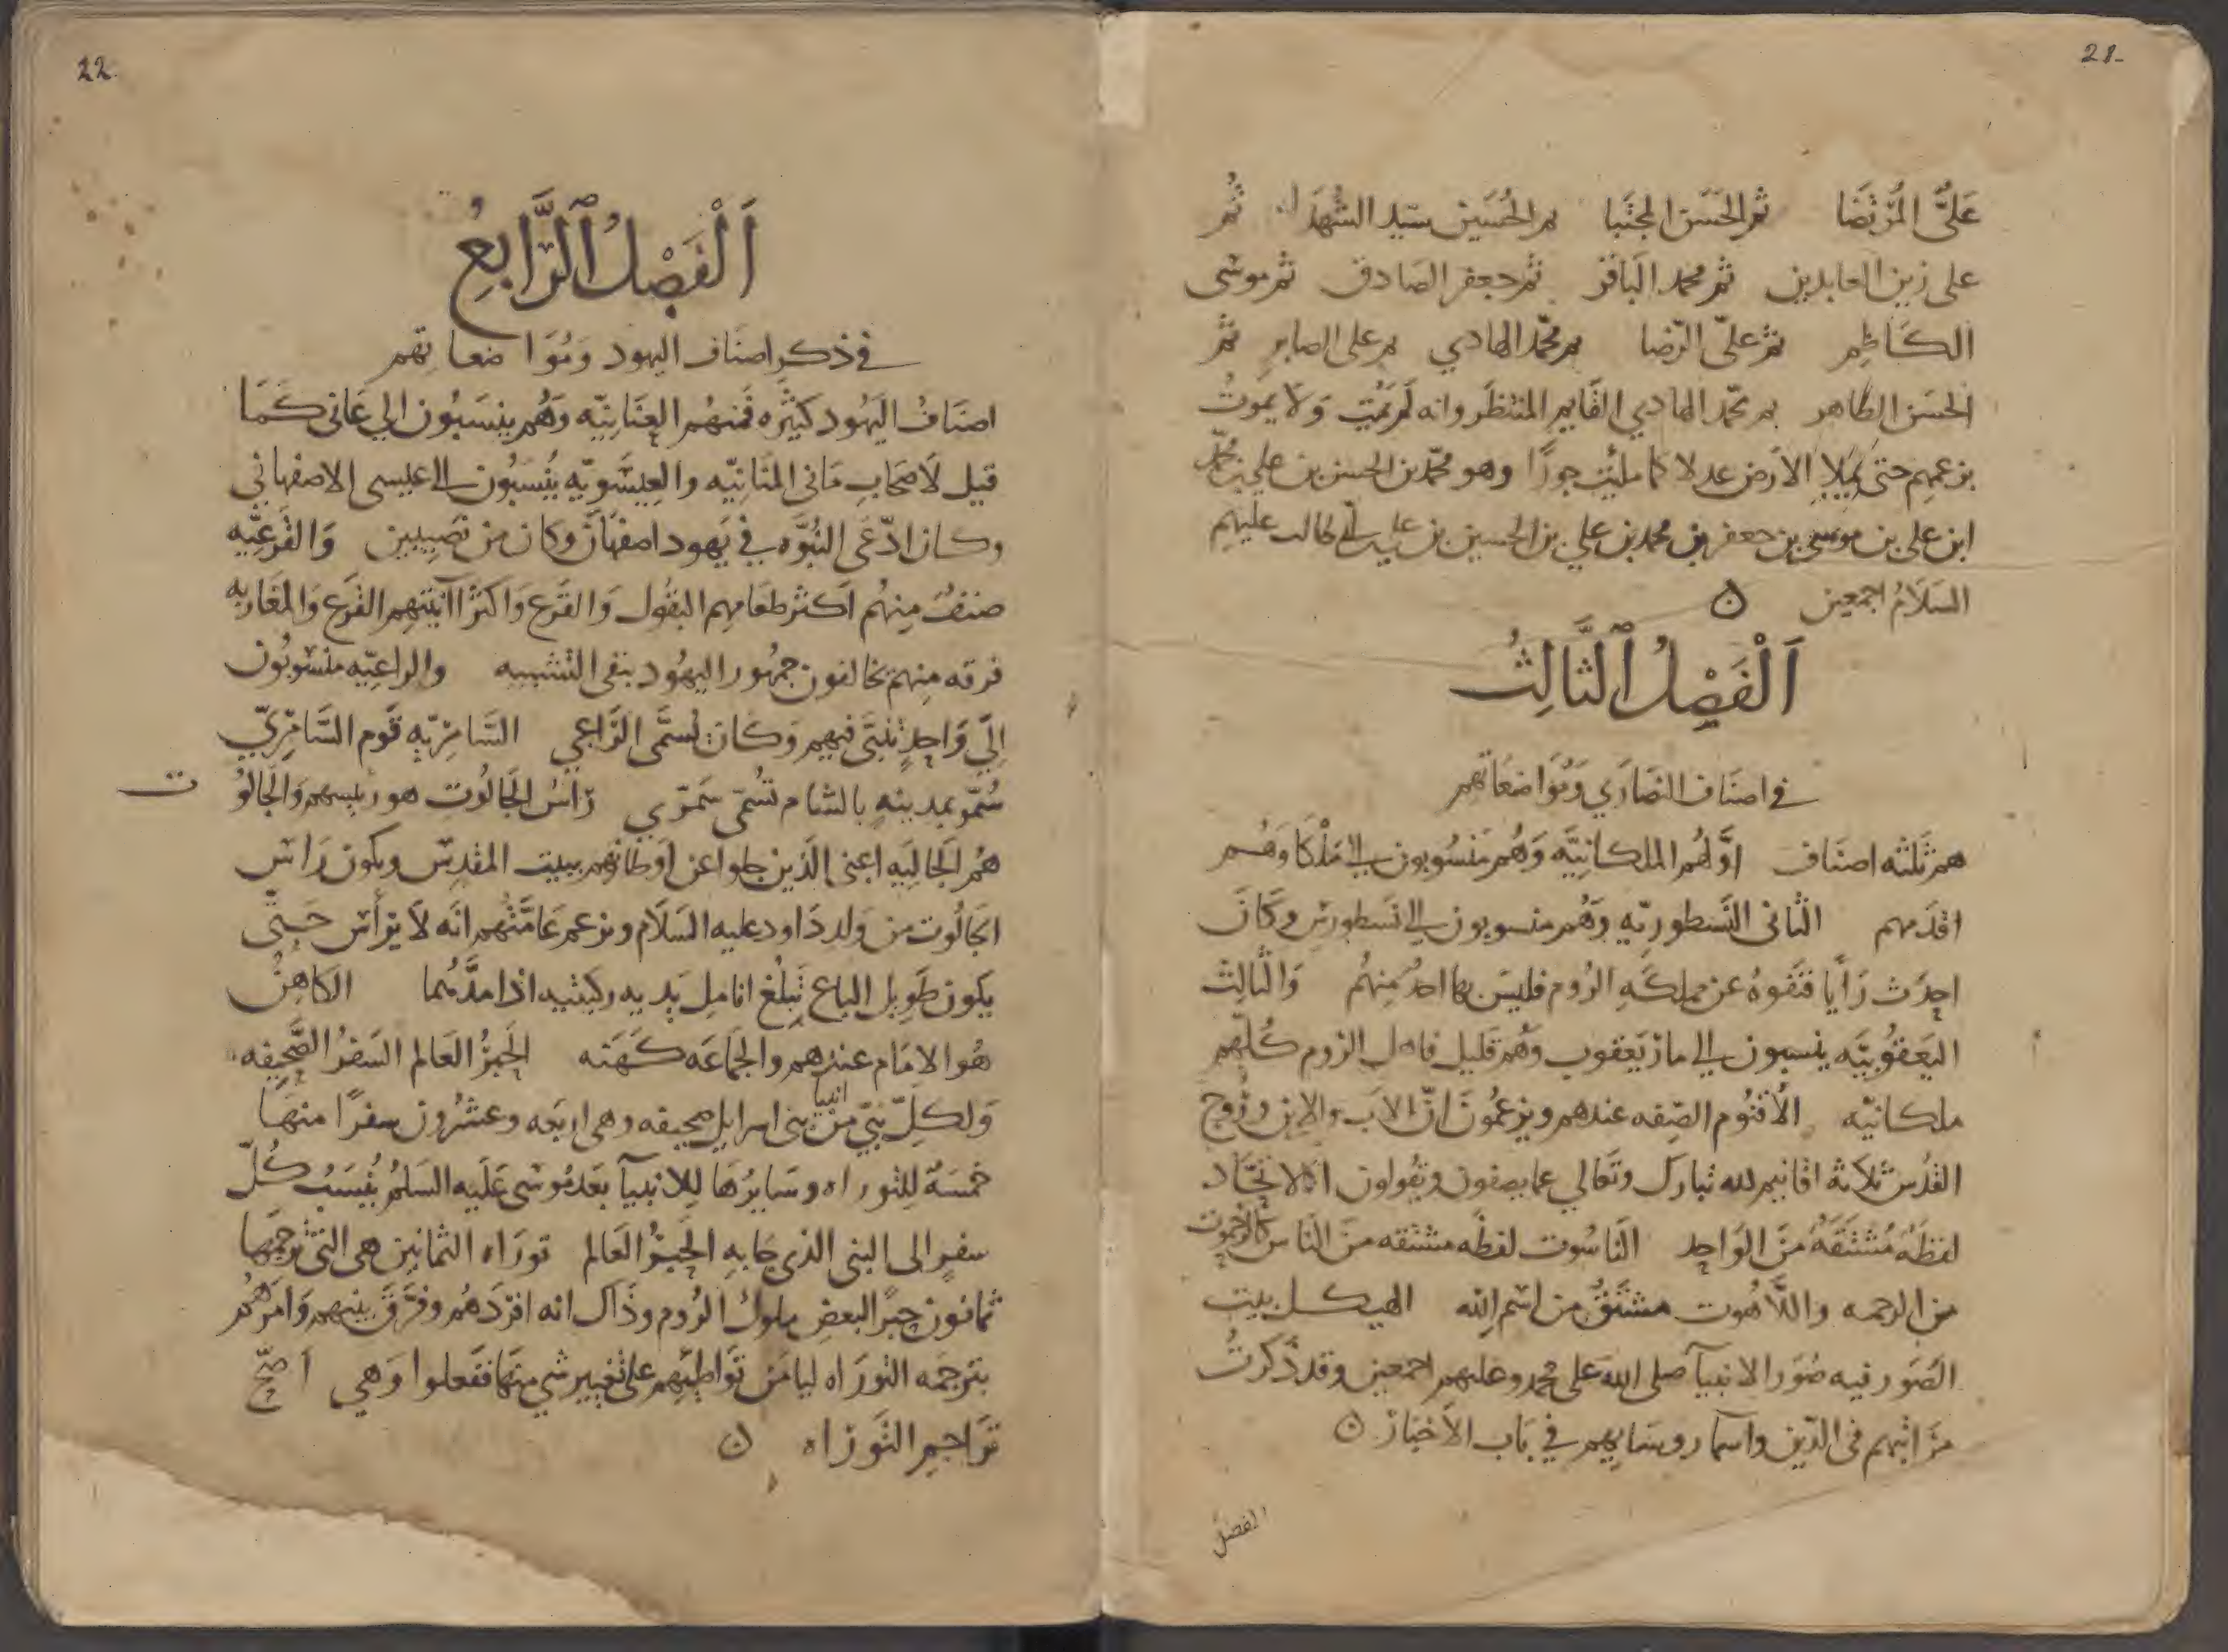 21
عَلىُّ المُرتَضَا ثم الحَسَن المجتَبا ثم الحُسَين سيّد الشُهدَا ثُم
على زين العابدين ثم محمد الباقر ثم جعفر الصَادق ثم موسى
الكاظِم ثم علىّ الرّضا ثم محمّد الهادي ثم على الصابر ثم
الحسَن الطاهر ثم محمّد الهادي القايم المنتظَر وانه لم يمُت وَلا يموتُ
بزعمهم حتى يملا الارض عدلا كما ملئت جورًا وهو محمّد بن الحسن بن علي بن محمّد
ابن على بن موسى بن جعفر بن محمد بن علي بن الحسين بن على بن ابي طالب عليهم
السَلَامُ اجمعين ن
اَلْفَصْلُ الثَّالِثُ
في اصنَاف النصَارَي وَمُوَاضعَاتهم
هم ثَلثه اصنَاف اوَّلهُم الملكانِيَّه وَهُم مَنسُوبون الى مَلْكَا وَهُم
اقدَمهم الثانى النَسطوريّه وَهُم منسوبون الى نَسطورس وَكَانَ
احدَث رَأيا فنَفَوهُ عن مملكَهِ الرُوم فليسَ بها احدٌ مِنهُم وَالثالِث
اليَعقُوبيَّه ينسبون الى مار يَعقوب وَهُم قليل فاهل الرُوم كُلّهم
ملكانيّه الاُقنُوم الصِفه عندهم ويزعمُونَ انّ الاَب والابن وَرُوح
القُدس ثلاثة اقانيم لله تبارك وتَعَالي عما يصفون ويَقُولون الاتحّاد
لفظَهُ مُشتَقَهُ منَ الوَاحِد النَاسُوت لفظه مشتقه منَ النَاس كالرحموت
من الرحمه واللَّاهُوت مشتَقُّ من اسم الله الهيكل بيت
الصُوَر فيه صُوَر الانبيآ صلى الله على محمد وعليهم اجمعين وقد ذكرتُ
مرَاتبهم فى الدّين واسما روسَايهم في بَاب الاَخبَار ن
الفصل
22
اَلْفَصْلُ الرَّابِعُ
في ذكر اصنَاف اليهود وَمُوَاضعاتهم
اصنَافُ اليَهُود كثيَره فمنهُم العِنَانيّه وَهُم ينسَبُون الى عَانى كَمَا
قيل لاَصحَابِ مَانى المنَانيّه والعِيسَوِيّه يُنسَبُون الى عيسى الاصفهانى
وكان ادّعَى النُبُوَّه في يَهود اصفهَان وكان من نَصِيبين وَالقَرعِيّه
صنفٌ مِنهُم اَكثر طعَامِهم البقُول وَالقَرع وَاكثر اآنيَتهم القَرع وَالمغَاربه
فرقه مِنهم يخالفون جمهُور اليهُود بنفى التشبيه والراعِيّه منسُوبُون
الَى وَاحِدٍ تنبَّى فيهم وَكَان يُسمَّى الرَّاعي السَّامِرِيّهِ قَوم السَّامِرِيّ
سُمّو بمدينهٍ بالشام تُسَمّى سَمَرّي رَاسُ الجَالُوت هو رئيسهم وَالجَالُوت
هُم الجَالِيَه اعنى الذين جلوا عن اَوطانهم ببيت المقدِس ويكون رَاس
الجَالُوت من وَلد دَاود عليه السَلَام ويزعم عَامَّتهُم انّه لاَ يرأس حَتّى
يكون طَويل الباع تَبلُغ انامِل يَديه ركبتيه اذا مدَّهُما الكاهِنُ
هُو الامَام عندهم والجمَاعَه كَهَنَه الحَبرُ العَالم السَفرُ الصَّحِيفه
وَلكلّ نبىّ من انبيا بنى اسرايل صحيفه وهى اربَعه وعشرُون سفرًا منهَا
خمسَهٌ للِتوراه وسَايرُهَا لِلانبيآ بعَد مُوسَى عَلَيه السَلمُ يُنسَبُ كُلّ
سفرٍ الى النبى الذى جَا بهِ الحَبرُ العَالم تورَاه الثمانين هى التى ترجمَها
ثمانون حِبرًا لبعض ملوك الرُوم وذَاك انه افرَدَهُم وفرَّقَ بينهم وَامَرهُم
بترجمَه التورَاه ليامَن تَوَاطِئهم على تغيير شى منهَا ففَعلوا وَهي اصحّ
ترَاجِم التَورَاه ن